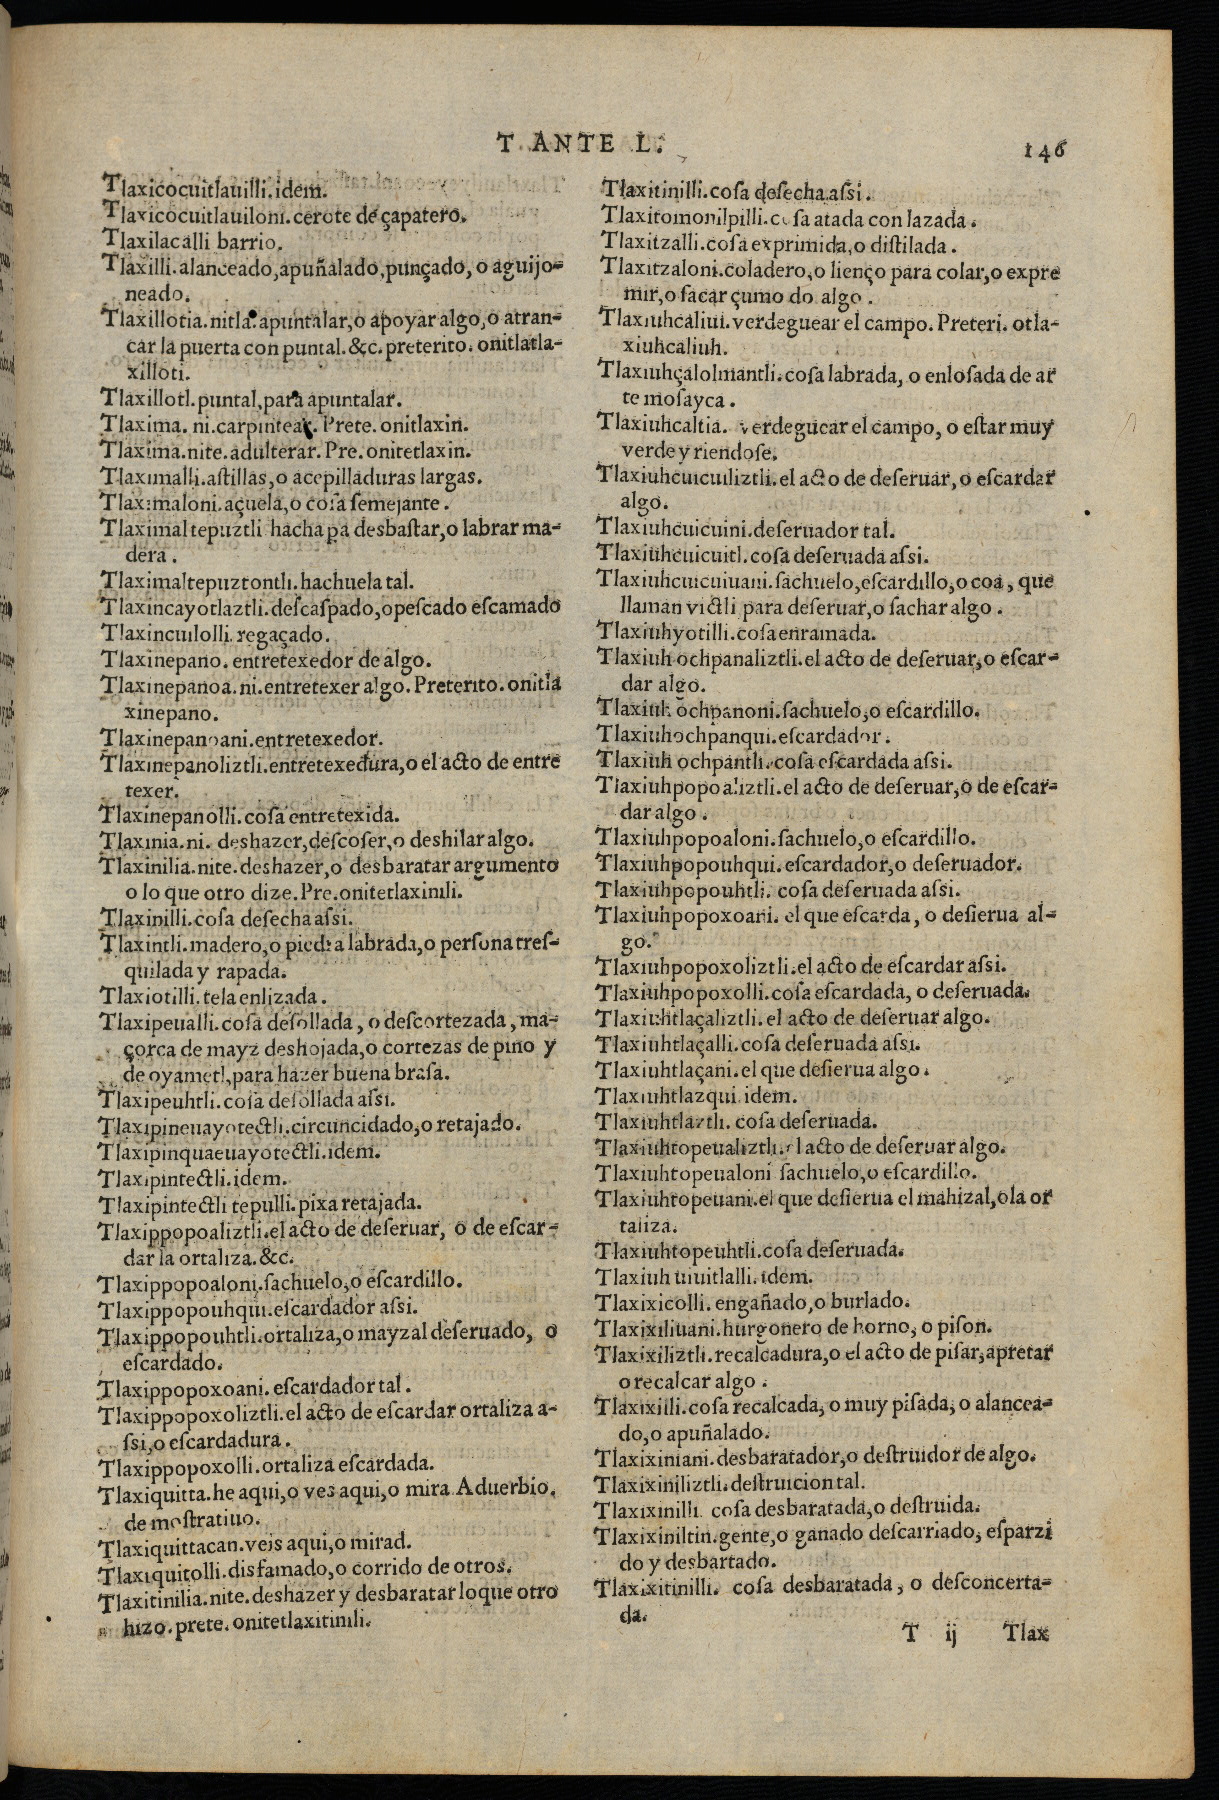 T ANTE L.
146
Tlaxicocuitlauilli. idem.
Tlaxicocuitlauiloni. cerote de çapatero.
Tlaxilacalli barrio.
Tlaxilli. alanceado, apuñalado, punçado, o aguijo-
neado.
Tlaxillotia. nitla. apuntalar, o apoyar algo, o atran-
car la puerta con puntal. &c. preterito. onitlatla-
xilloti.
Tlaxillotl. puntal, para apuntalar.
Tlaxima. ni. carpintear. Prete. onitlaxin.
Tlaxima. nite. adulterar. Pre. onitetlaxin.
Tlaximalli. aſtillas, o acepilladuras largas.
Tlaximaloni. açuela, o coſa ſemejante.
Tlaximaltepuztli hacha pa desbaſtar, o labrar ma-
dera.
Tlaximaltepuztontli. hachuela tal.
Tlaxincayotlaztli. deſcaſpado, opescado eſcamado
Tlaxincuilolli. regaçado.
Tlaxinepano. entretexedor de algo.
Tlaxinepanoa. ni. entretexer algo. Preterito. onitla
xinepano.
Tlaxinepanoani. entretexedor.
Tlaxinepanoliztli. entretexedura, o el acto de entre
texer.
Tlaxinepanolli. coſa entretexida.
Tlaxinia. ni. deshazer, deſcoſer, o deshilar algo.
Tlaxinilia. nite. deshazer, o desbaratar argumento
o lo que otro dize. Pre. onitetlaxinili.
Tlaxinilli. coſa deſecha aſsi.
Tlaxintli. madero, o piedra labrada, o perſona treſ-
quilada y rapada.
Tlaxiotilli. tela enlizada.
Tlaxipeualli. coſa deſollada, o deſcortezada, ma-
çorca de mayz deshojada, o cortezas de pino y
de oyametl, para hazer buena braſa.
Tlaxipeuhtli. coſa deſollada aſsi.
Tlaxipineuayotectli. circuncidado, o retajado.
Tlaxipinquaeuayotectli. idem.
Tlaxipintectli. idem.
Tlaxipintectli tepulli. pixa retajada.
Tlaxippopoaliztli. el acto de deſeruar, o de eſcar-
dar la ortaliza. &c.
Tlaxippopoaloni. ſachuelo, o eſcardillo.
Tlaxippopouhqui. eſcardador aſsi.
Tlaxippopouhtli. ortaliza, o mayzal deſeruado, o
eſcardado.
Tlaxippopoxoani. eſcardador tal.
Tlaxippopoxoliztli. el acto de eſcardar ortaliza a-
ſsi, o eſcardadura.
Tlaxippopoxolli. ortaliza eſcardada.
Tlaxiquitta. he aqui, o ves aqui, o mira. Aduerbio.
de moſtratiuo.
Tlaxiquittacan. veis aqui, o mirad.
Tlaxiquitolli. disfamado, o corrido de otros.
Tlaxitinilia. nite. deshazer y desbaratar loque otro
hizo. prete. onitetlaxitinili.
Tlaxitinilli. coſa deſecha aſsi.
Tlaxitomonilpilli. coſa atada con lazada.
Tlaxitzalli. coſa exprimida, o diſtilada.
Tlaxitzaloni. coladero, o lienço para colar, o expre
mir, o ſacar çumo do algo.
Tlaxiuhcaliui. verdeguear el campo. Preteri. otla-
xiuhcaliuh.
Tlaxiuhçalolmantli. coſa labrada, o enloſada de ar
te moſayca.
Tlaxiuhcaltia. verdeguear el campo, o eſtar muy
verde y riendoſe.
Tlaxiuhcuicuiliztli. el acto de deſeruar, o eſcardar
algo.
Tlaxiuhcuicuini. deſeruador tal.
Tlaxiuhcuicuitl. coſa deſeruada aſsi.
Tlaxiuhcuicuiuani. ſachuelo, eſcardillo, o coa, que
llaman victli para deſeruar, o ſachar algo.
Tlaxiuhyotilli. coſa enramada.
Tlaxiuh ochpanaliztli. el acto de deſeruar, o eſcar-
dar algo.
Tlaxiuh ochpanoni. ſachuelo, o eſcardillo.
Tlaxiuhochpanqui. eſcardador.
Tlaxiuh ochpantli. coſa eſcardada aſsi.
Tlaxiuhpopoaliztli. el acto de deſeruar, o de eſcar-
dar algo.
Tlaxiuhpopoaloni. ſachuelo, o eſcardillo.
Tlaxiuhpopouhqui. eſcardador, o deſeruador.
Tlaxiuhpopouhtli. coſa deſeruada aſsi.
Tlaxiuhpopoxoani. el que eſcarda, o deſierua al-
go.
Tlaxiuhpopoxoliztli. el acto de eſcardar aſsi.
Tlaxiuhpopoxolli. coſa eſcardada, o deſeruada.
Tlaxiuhtlaçaliztli. el acto de deſeruar algo.
Tlaxiuhtlaçalli. coſa deſeruada aſsi.
Tlaxiuhtlaçani. el que deſierua algo.
Tlaxiuhtlazqui. idem.
Tlaxiuhtlaztli. coſa deſeruada.
Tlaxiuhtopeualiztli. el acto de deſeruar algo.
Tlaxiuhtopeualoni ſachuelo, o eſcardillo.
Tlaxiuhtopeuani. el que deſierua el mahizal, ola or
taliza.
Tlaxiuhtopeuhtli. coſa deſeruada.
Tlaxiuh uiuitlalli. idem.
Tlaxixicolli. engañado, o burlado.
Tlaxixiliuani. hurgonero de horno, o piſon.
Tlaxixiliztli. recalcadura, o el acto de piſar, apretar
o recalcar algo.
Tlaxixilli. coſa recalcada, o muy piſada, o alancea-
do, o apuñalado.
Tlaxixiniani. desbaratador, o deſtruidor de algo.
Tlaxixiniliztli. deſtruicion tal.
Tlaxixinilli. coſa desbaratada, o deſtruida.
Tlaxixiniltin. gente, o ganado deſcarriado, eſparzi
do y desbartado.
Tlaxixitinilli. coſa desbaratada, o deſconcerta-
da.
T ij Tlax